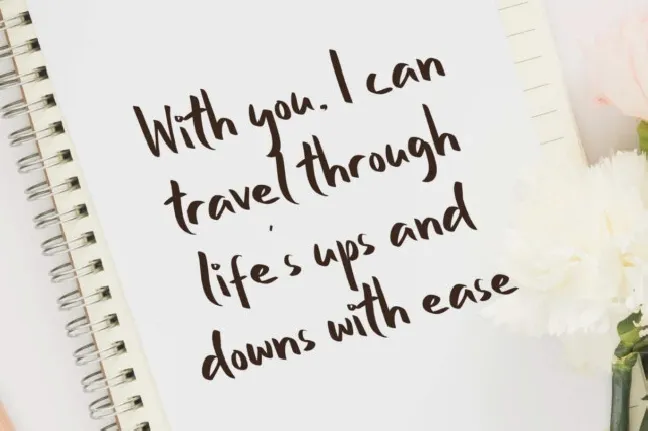 With you. I can
travel through
life's ups and
downs with ease